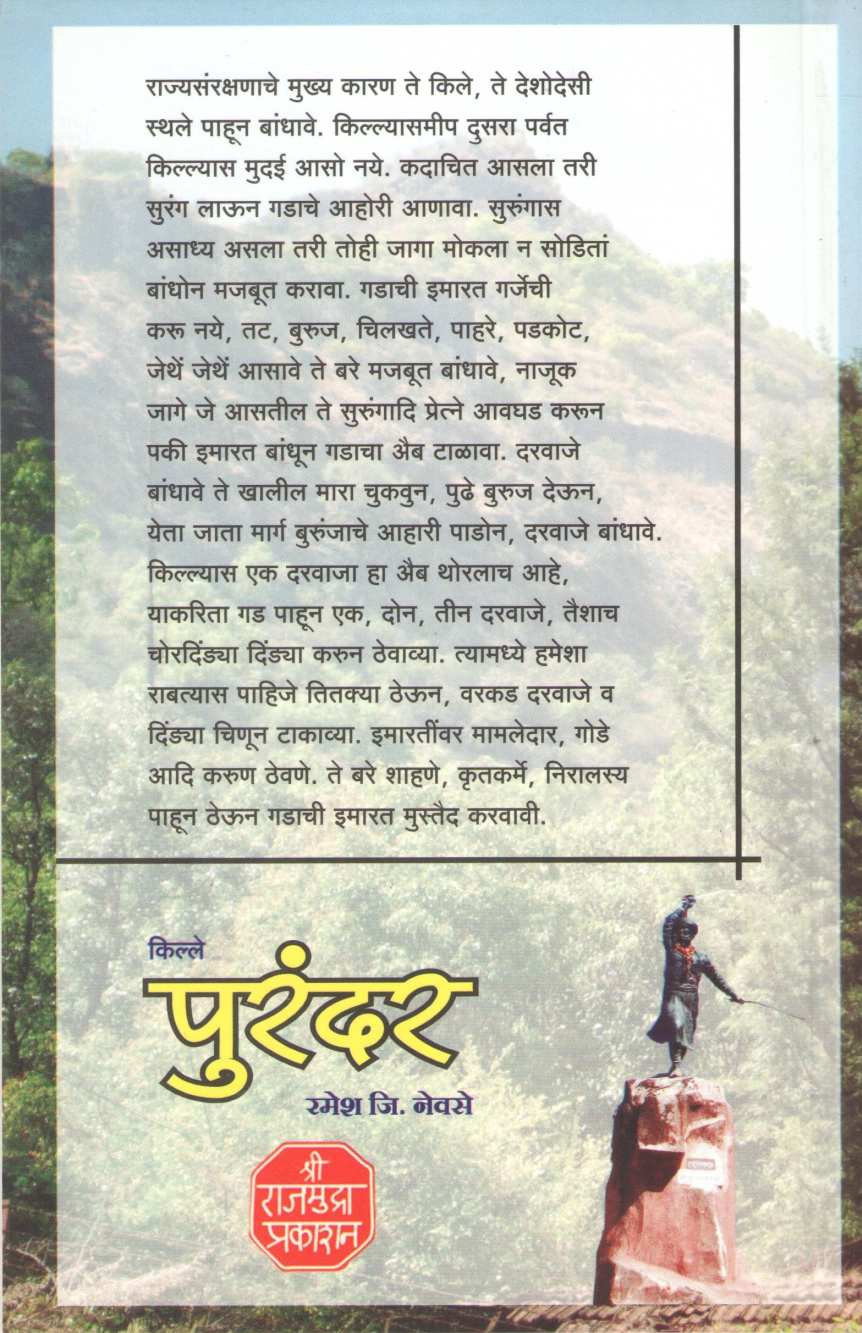 राज्यसंरक्षणाचे मुख्य कारण ते किले, ते देशोदेसी
स्थले पाहून बांधावे. किल्ल्यासमीप दुसरा पर्वत
किल्ल्यास मुदई आसो नये. कदाचित आसला तरी
सुरंग लाऊन गडाचे आहोरी आणावा. सुरुंगास
असाध्य असला तरी तोही जागा मोकला न सोडितां
बांधोन मजबूत करावा. गडाची इमारत गर्जेची
करू नये, तट, बुरुज, चिलखते, पाहरे, पडकोट,
जेथें जेथें आसावे ते बरे मजबूत बांधावे, नाजूक
जागे जे आसतील ते सुरुंगादि प्रेत्ने आवघड करून
पकी इमारत बांधून गडाचा अैब टाळावा. दरवाजे
बांधावे ते खालील मारा चुकवुन, पुढे बुरुज देऊन,
येता जाता मार्ग बुरुंजाचे आहारी पाडोन, दरवाजे बांधावे.
किल्ल्यास एक दरवाजा हा अैब थोरलाच आहे,
याकरिता गड पाहून एक, दोन, तीन दरवाजे, तैशाच
चोरदिंड्या दिंड्या करुन ठेवाव्या. त्यामध्ये हमेशा
राबत्यास पाहिजे तितक्या ठेऊन, वरकड दरवाजे व
दिंड्या चिणून टाकाव्या. इमारतींवर मामलेदार, गोडे
आदि करुण ठेवणे. ते बरे शाहणे, कृतकर्मे, निरालस्य
पाहून ठेऊन गडाची इमारत मुस्तैद करवावी.
किल्ले
पुरंदर
रमेश जि. नेवसे
श्री
राजमुद्रा
प्रकाशन